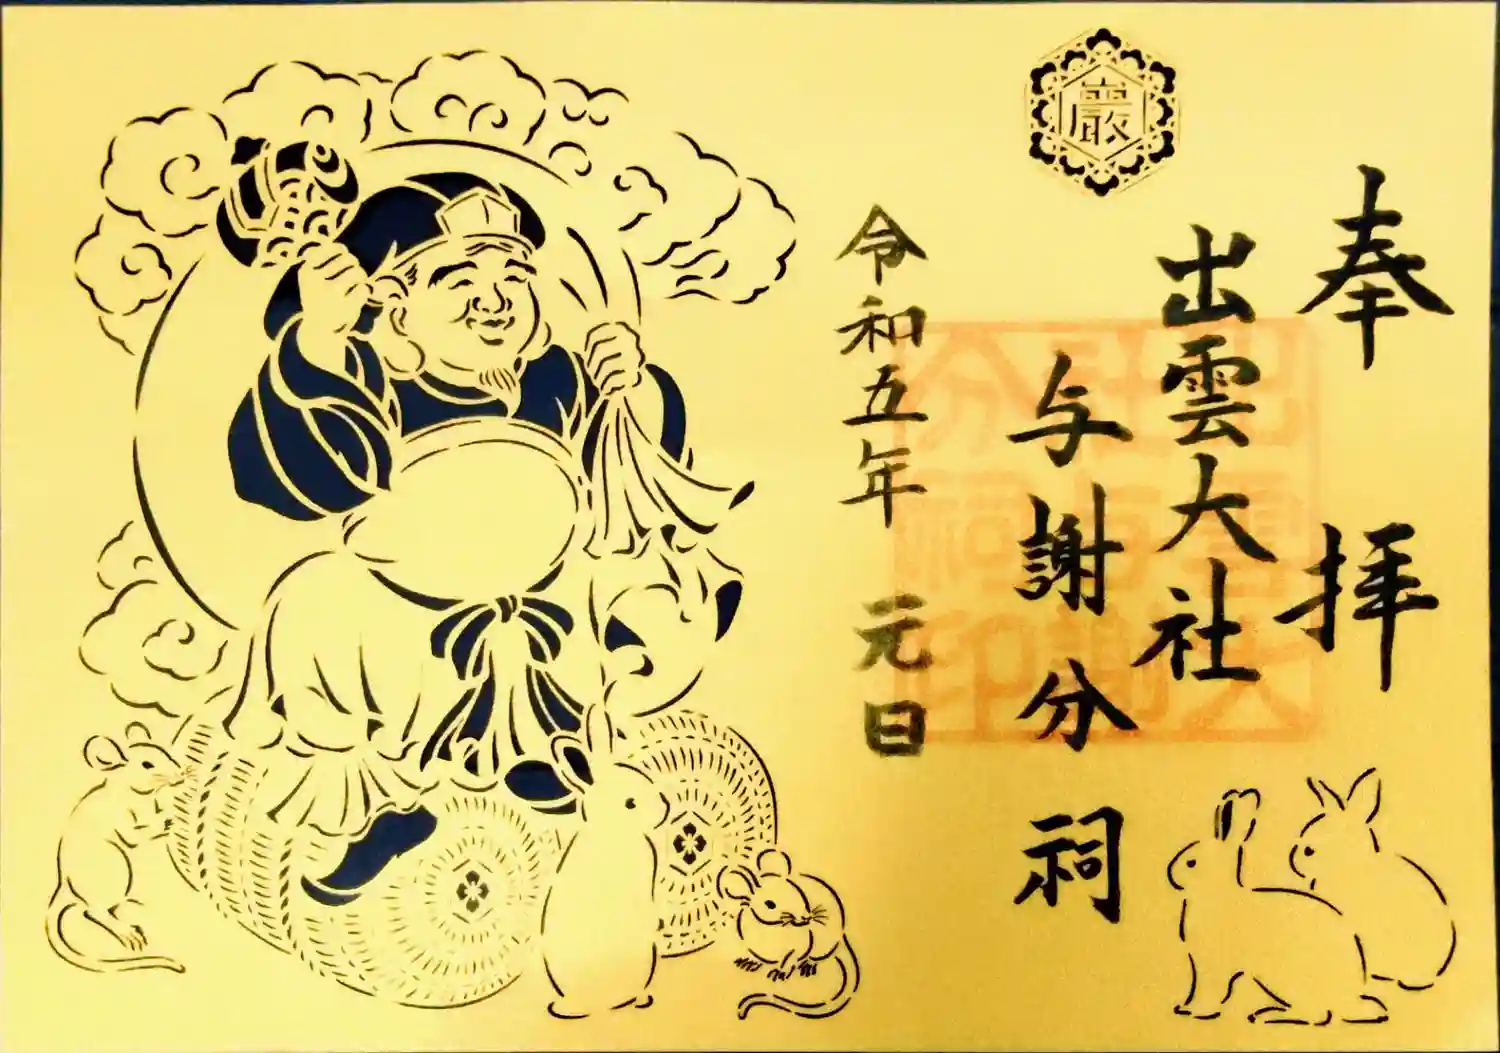 奉拝
出雲大社
与謝分祠
巖
令和五年 元日